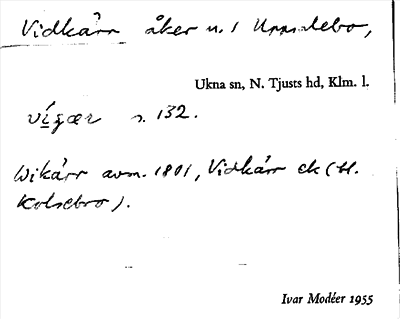 Vidkärr åker n. 1 Uppsalebo,
Ukna sn, N. Tjusts hd, Klm. l.
s. 132.
Wikärr avm. 1801, Vidkärr ek (bl.
Kolsebro).
Ivar Modéer 1955